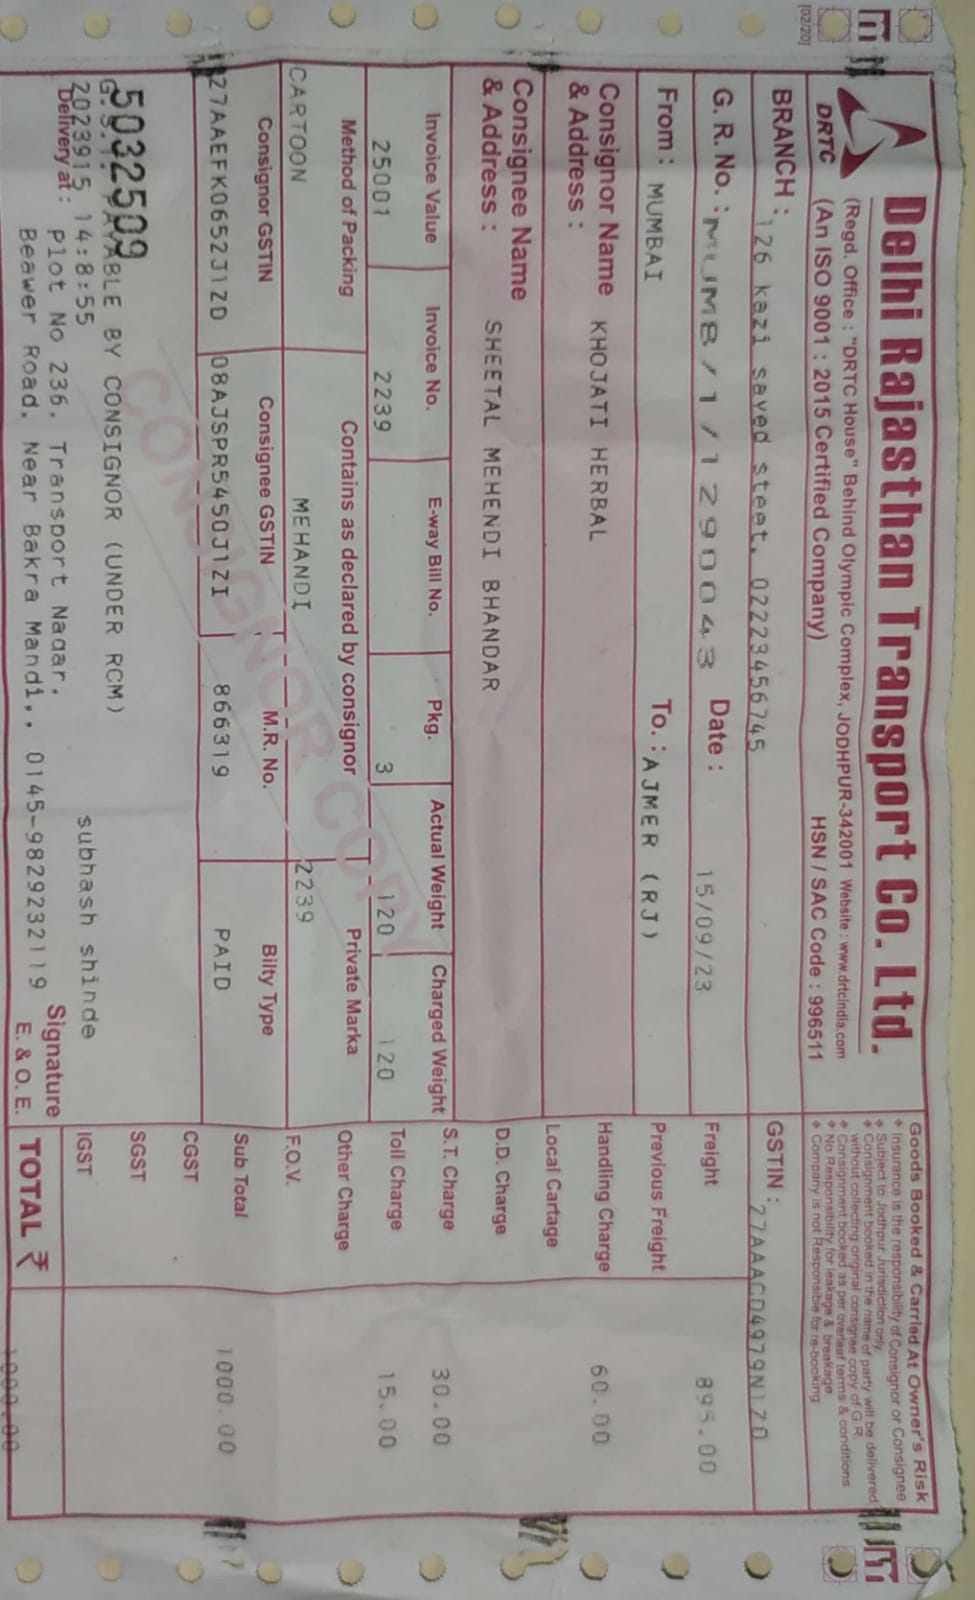 [02/20]
DRTC
Delhi Rajasthan Transport Co. Ltd.
(Regd. Office : "DRTC House" Behind Olympic Complex, JODHPUR-342001 Website : www.drtcindia.com
(An ISO 9001 : 2015 Certified Company) HSN / SAC Code : 996511
Goods Booked & Carried At Owner's Risk
Insurance is the responsibility of Consignor or Consignee
Subject to Jodhpur Jurisdiction only.
Consignment booked in the name of party will be delivered
without collecting original consignee copy of G.R.
Consignment booked as per overleaf terms & conditions
No Responsibility for leakage & breakage.
Company is not Responsible for re-booking
BRANCH : 126 kazi sayed steet. 02223456745
GSTIN : 27AAACD4979N1ZO
G. R. No. : MUMB/1/1290043 Date : 15/09/23
Freight 895.00
From : MUMBAI To. : AJMER (RJ)
Previous Freight
Consignor Name KHOJATI HERBAL
& Address :
Handling Charge 60.00
Local Cartage
Consignee Name
& Address : SHEETAL MEHENDI BHANDAR
D.D. Charge
Invoice Value Invoice No. E-way Bill No. Pkg. Actual Weight Charged Weight
S.T. Charge 30.00
25001 2239 3 120 120
Toll Charge 15.00
Method of Packing Contains as declared by consignor Private Marka
Other Charge
CARTOON MEHANDI 2239
F.O.V.
Consignor GSTIN Consignee GSTIN M.R. No. Bilty Type
Sub Total 1000.00
27AAEFK0652J1ZD 08AJSPR5450J1ZI 866319 PAID
CGST
CONSIGNOR COPY
5032509
SGST
G.S.T. PAYABLE BY CONSIGNOR (UNDER RCM)
2023915 14:8:55 subhash shinde
IGST
Delivery at : Plot No 236. Transport Nagar.
Signature
Beawer Road. Near Bakra Mandi.. 0145-9829232119
E. & O. E.
TOTAL ₹ 1000.00